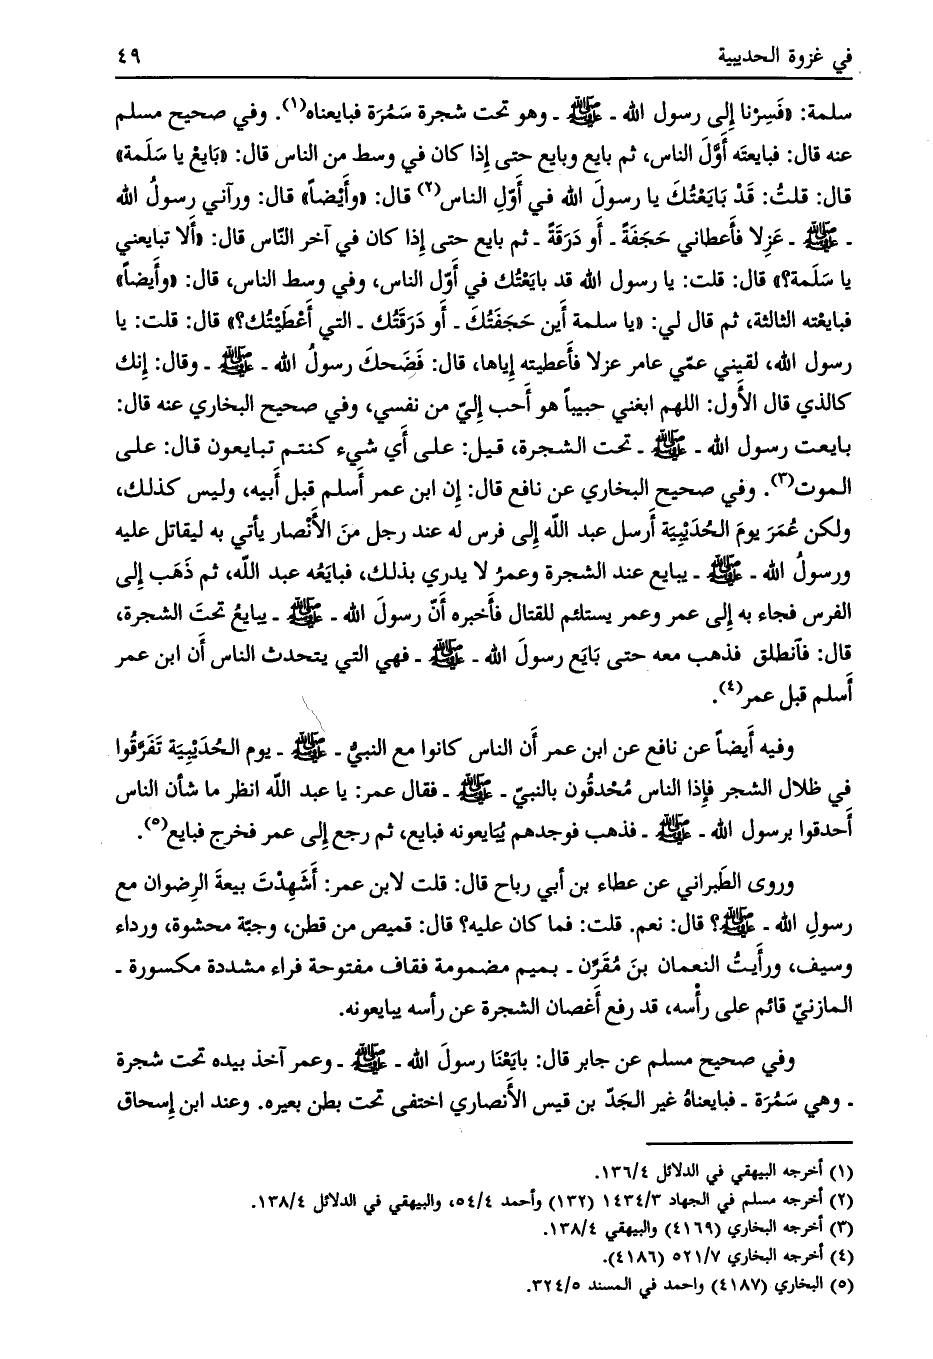 في غزوة الحديبية
٤٩
سلمة: «فَسِرْنا إلى رسول الله ـ ﷺ ـ وهو تحت شجرة سَمُرَة فبايعناه(١). وفي صحيح مسلم
عنه قال: فبايعتَه أَوَّلَ الناس، ثم بايع وبايع حتى إذا كان في وسط من الناس قال: «بَايعْ يا سَلَمة»
قال: قلتُ: قَدْ بَايَعْتُكَ يا رسولَ الله في أَوّلِ الناس(٢) قال: «وأَيْضاً» قال: ورآني رسولُ الله
ـ ﷺ ـ عَزِلا فأَعطاني حَجَفَةً ـ أَو دَرَقَةً ـ ثم بايع حتى إذا كان في آخر النّاس قال: «أَلا تبايعني
يا سَلَمة؟» قال: قلت: يا رسول الله قد بايَعْتُك في أَوّل الناس، وفي وسط الناس، قال: «وأَيضاً»
فبايعْته الثالثة، ثم قال لي: «يا سلمة أَين حَجَفَتُكَ ـ أَو دَرَقَتُك ـ التي أَعْطَيْتُك؟» قال: قلت: يا
رسول الله، لقيني عمّي عامر عزلا فأَعطيته إياها، قال: فَضَحكَ رسولُ الله ـ ﷺ ـ وقال: إنك
كالذي قال الأَول: اللهم ابغني حبيباً هو أَحب إليّ من نفسي، وفي صحيح البخاري عنه قال:
بايعت رسول الله ـ ﷺ ـ تحت الشجرة، قيل: على أَي شيء كنتم تبايعون قال: على
الموت(٣). وفي صحيح البخاري عن نافع قال: إن ابن عمر أَسلم قبل أَبيه، وليس كذلك،
ولكن عُمَرَ يومَ الحُدَيْبِيَة أَرسل عبد اللّه إلى فرس له عند رجل منَ الأَنْصار يأتي به ليقاتل عليه
ورسولُ الله ـ ﷺ ـ يبايع عند الشجرة وعمرُ لا يدري بذلك، فبايَعُه عبد اللّه، ثم ذَهَب إلى
الفرس فجاء به إلى عمر وعمر يستلئم للقتال فأَخبره أَنّ رسولَ الله ـ ﷺ ـ يبايعُ تحتَ الشجرة،
قال: فآنطلق فذهب معه حتى بَايَع رسولَ الله ـ ﷺ ـ فهي التي يتحدث الناس أَن ابن عمر
أَسلم قبل عمر(٤).
وفيه أَيضاً عن نافع عن ابن عمر أَن الناس كانوا مع النبيُّ ـ ﷺ ـ يوم الحُدَيْبِيَة تَفَرَّقُوا
في ظلال الشجر فإذا الناس مُحْدقُون بالنبيّ ـ ﷺ ـ فقال عمر: يا عبد اللّه انظر ما شأن الناس
أَحدقوا برسول الله ـ ﷺ ـ فذهب فوجدهم يُبَايعونه فبايع، ثم رجع إلى عمر فخرج فبايع(٥).
وروى الطَبراني عن عطاء بن أبي رباح قال: قلت لابن عمر: أَشَهِدْتَ بيعةَ الرِضوان مع
رسولِ الله ـ ﷺ؟ قال: نعم. قلت: فما كان عليه؟ قال: قميص من قطن، وجبّة محشوة، ورداء
وسيف، ورأَيتُ النعمان بنَ مُقَرّن ـ بميم مضمومة فقاف مفتوحة فراء مشددة مكسورة ـ
المازنيّ قائم على رأْسه، قد رفع أَغصان الشجرة عن رأسه يبايعونه.
وفي صحيح مسلم عن جابر قال: بايَعْنَا رسولَ الله ـ ﷺ ـ وعمر آخذ بيده تحت شجرة
ـ وهي سَمُرَة ـ فبايعناهُ غير الجَدّ بن قيس الأَنصاري اختفى تحت بطن بعيره. وعند ابن إسحاق
(١) أخرجه البيهقي في الدلائل ١٣٦/٤.
(٢) أخرجه مسلم في الجهاد ١٤٣٤/٣ (١٣٢) وأحمد ٥٤/٤، والبيهقي في الدلائل ١٣٨/٤.
(٣) أخرجه البخاري (٤١٦٩) والبيهقي ١٣٨/٤.
(٤) أخرجه البخاري ٥٢١/٧ (٤١٨٦).
(٥) البخاري (٤١٨٧) واحمد في المسند ٣٢٤/٥.